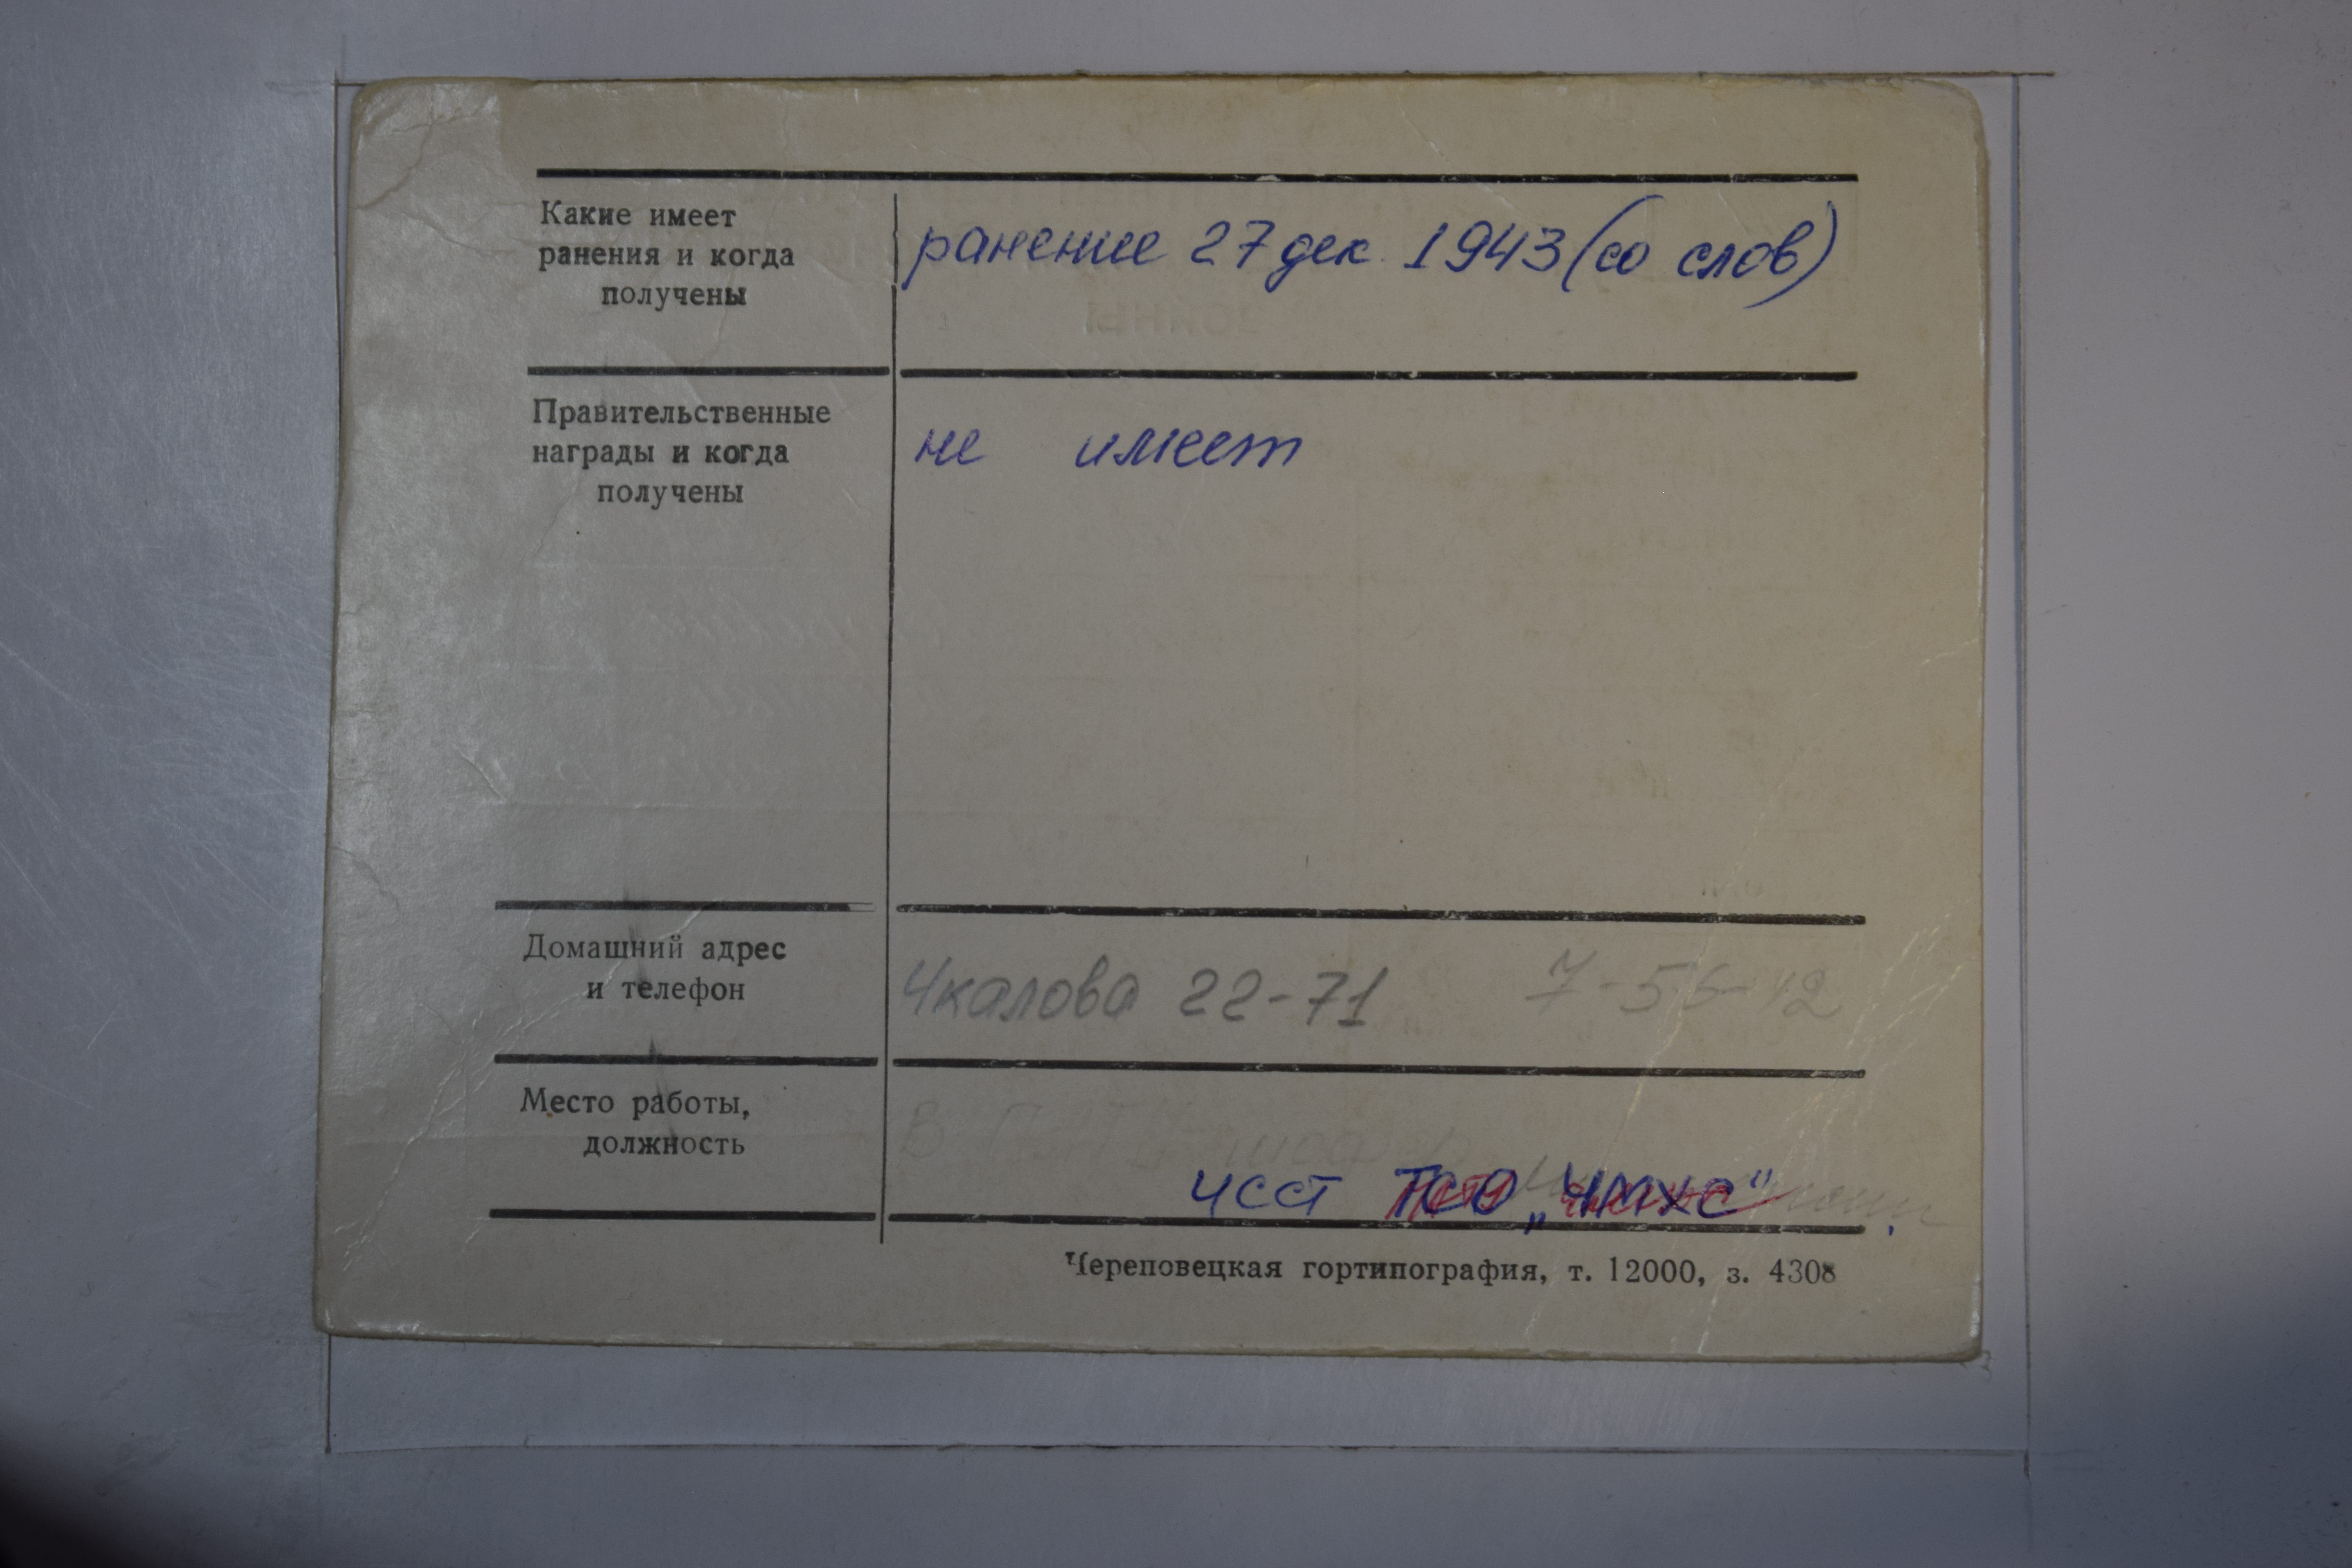 Какие имеет
ранения и когда
получены
ранение 27 дек. 1943 (со слов)
Правительственные
награды и когда
получены
не имеет
Домашний адрес
и телефон
Чкалова 22-71 7-55-12
Место работы,
должность
ЧССТ ТСО „ЧМХС"
Череповецкая гортипография, т. 12000, з. 4308